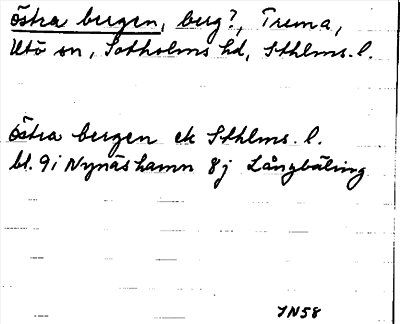 Östra bergen, berg?, Trema,
Utö sn, Sotholms hd, Sthlms. l.
Östra bergen ek Sthlms. l.
bl. 9i Nynäshamn 8j Långbäling
JN58